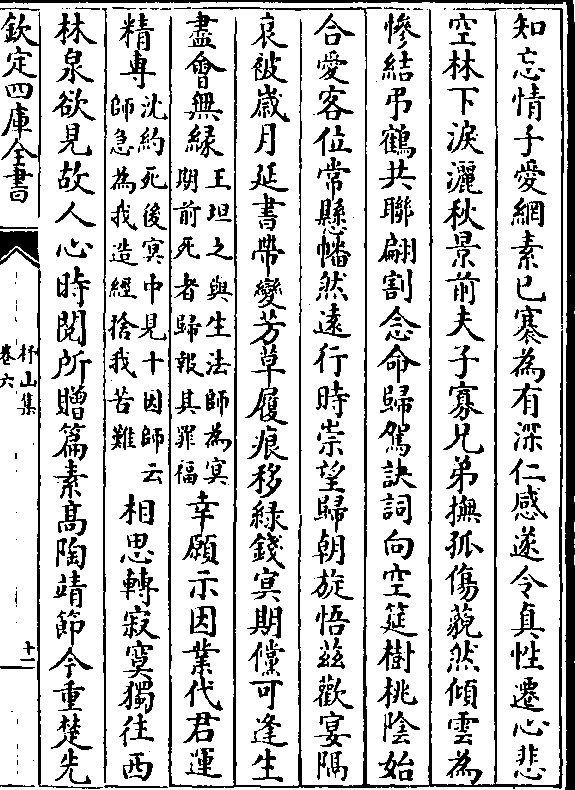 知忘情子愛網素已褰為有深仁感遂令真性遷心悲
空林下淚灑秋景前夫子寡兄弟撫孤傷藐然傾雲為
慘結弔鶴共聯翩割念命歸駕訣詞向空筵樹桃陰始
合愛客位常懸幡然遠行時崇望歸朝旋悟茲歡宴隔
哀被歲月延書帶變芳草履痕移綠錢冥期儻可逢生
盡會無緣王坦之與生法師為冥期前死者歸報其罪福幸願示因業代君運
精專沈約死後冥中見十因師云師急為我造經捨我苦難相思轉寂寞獨往西
林泉欲見故人心時閱所贈篇素高陶靖節今重楚先
欽定四庫全書
杼山集
卷六
十一